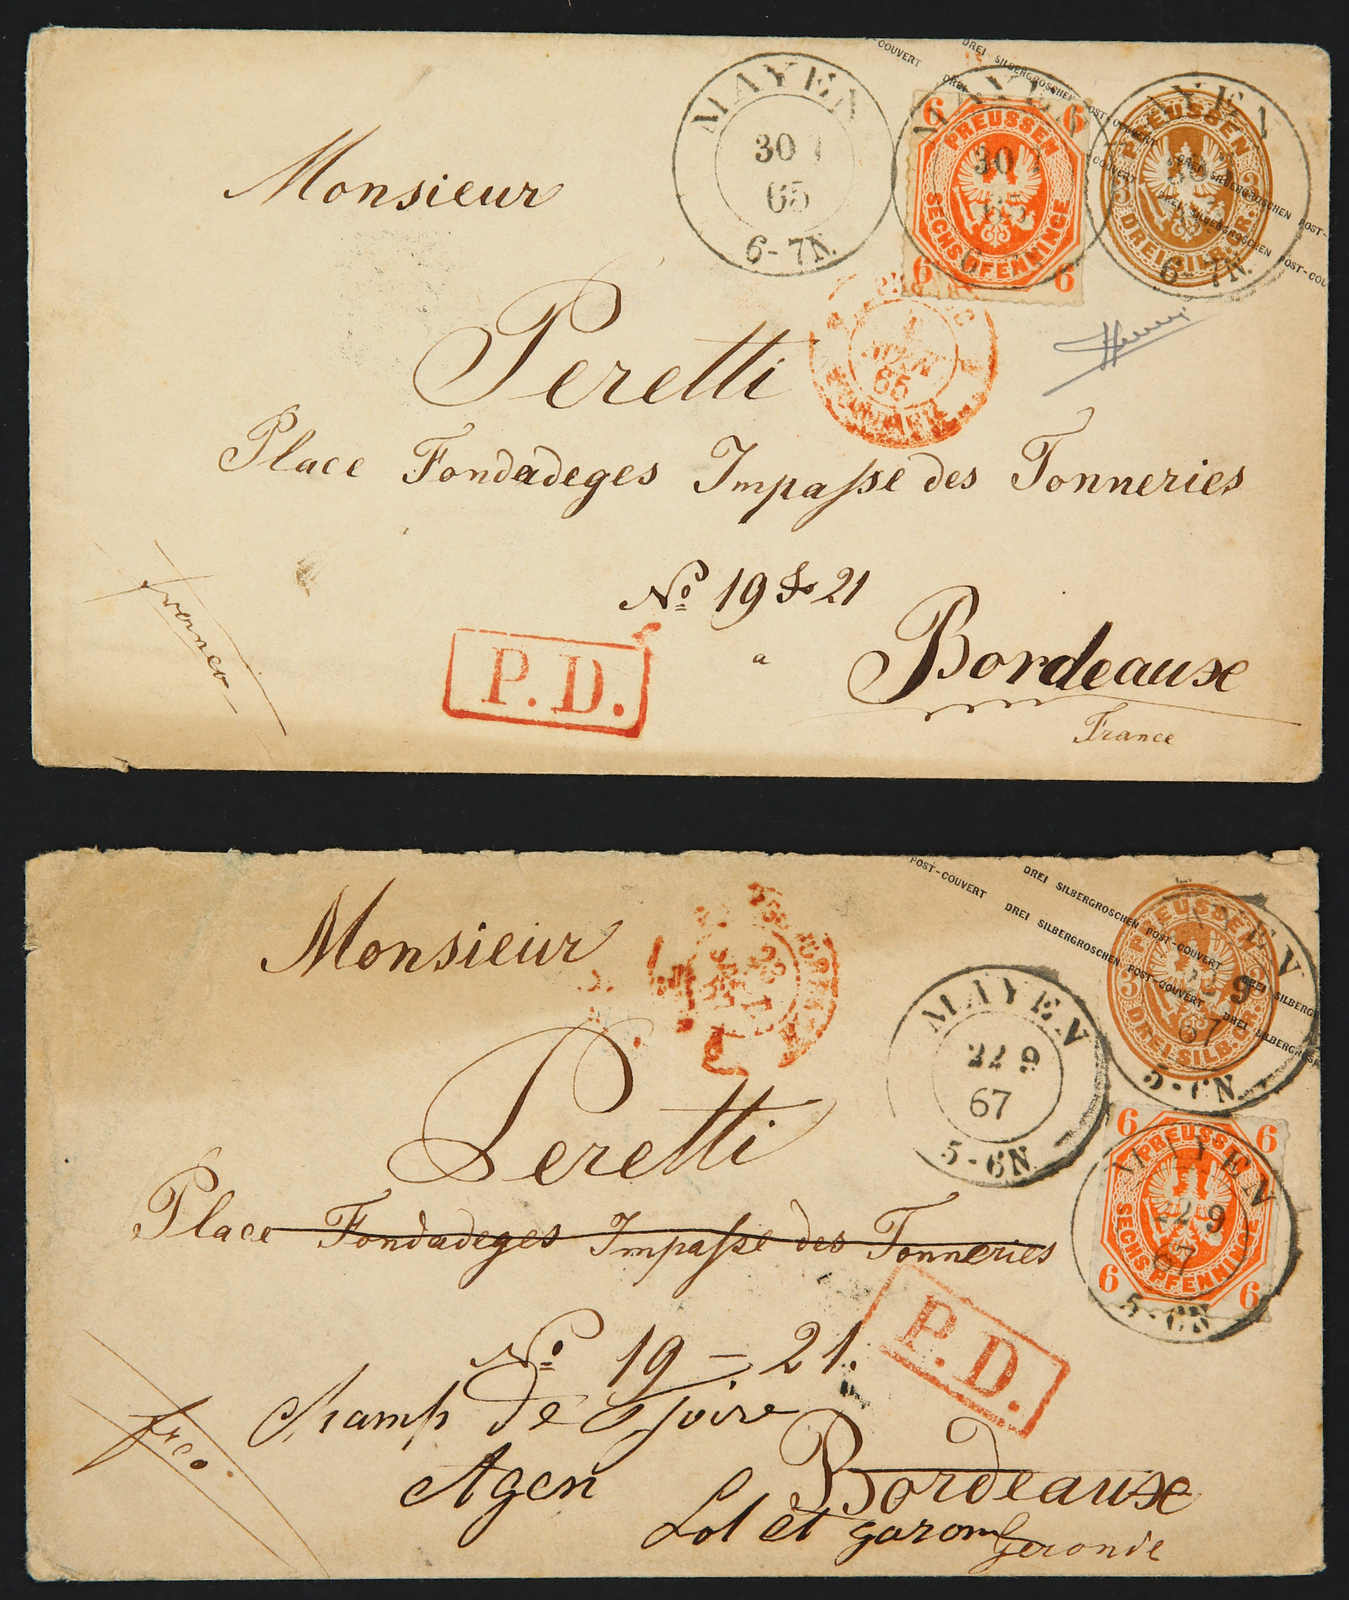 POST-COUVERT DREI SILBERGROSCHEN POST-COUVERT DREI SILBERGROSCHEN POST-COUVERT
MAYEN
30
65
6-7N.
6 6
PREUSSEN
SECHS PFENNINGE
6 6
MAYEN
30
65
PREUSSEN
3 3
DREI SILB. GR.
MAYEN
6-7N.
65
Monsieur
Peretti
Place Fondadeges Impasse des Tonneries
No 19 & 21
a
Bordeaux
France
Franco
P.D.
POST-COUVERT DREI SILBERGROSCHEN POST-COUVERT DREI SILBERGROSCHEN
DREI SILBERGROSCHEN POST-COUVERT DREI SILBERGROSCHEN
PREUSSEN
3 3
DREI SILB. GR.
MAYEN
22 9
67
5-6N.
MAYEN
22 9
67
5-6N.
6 6
PREUSSEN
SECHS PFENNINGE
6 6
MAYEN
22 9
67
5-6N.
Monsieur
Peretti
Place Fondadeges Impasse des Tonneries
No 19-21.
P.D.
Champ de foire
Agen
Bordeaux
Lot et garonn
Geronde
frco.